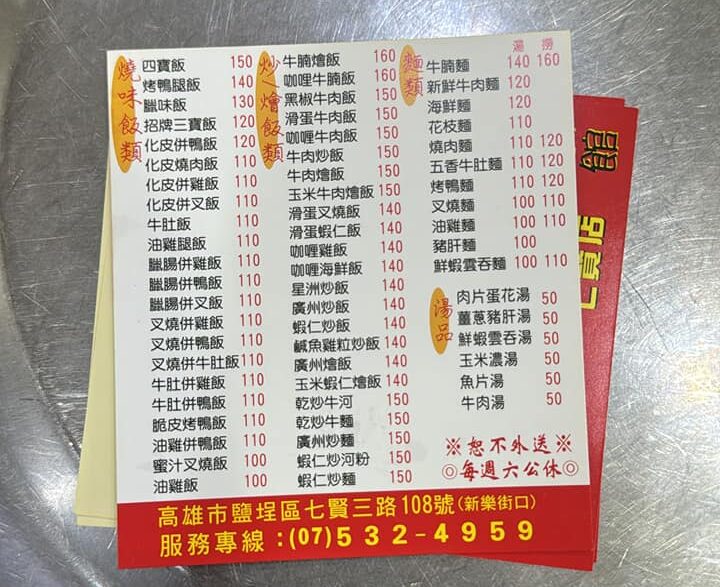 燒味飯類
四寶飯 150
烤鴨腿飯 140
臘味飯 130
招牌三寶飯 120
化皮併鴨飯 120
化皮燒肉飯 110
化皮併雞飯 110
化皮併叉飯 110
牛肚飯 110
油雞腿飯 110
臘腸併雞飯 110
臘腸併鴨飯 110
臘腸併叉飯 110
叉燒併雞飯 110
叉燒併鴨飯 110
叉燒併牛肚飯 110
牛肚併雞飯 110
牛肚併鴨飯 110
脆皮烤鴨飯 110
油雞併鴨飯 110
蜜汁叉燒飯 100
油雞飯 100
炒燴飯類
牛腩燴飯 160
咖喱牛腩飯 160
黑椒牛肉飯 150
滑蛋牛肉飯 150
咖喱牛肉飯 150
牛肉炒飯 150
牛肉燴飯 150
玉米牛肉燴飯 150
滑蛋叉燒飯 140
滑蛋蝦仁飯 140
咖喱雞飯 140
咖喱海鮮飯 140
星洲炒飯 140
廣州炒飯 140
蝦仁炒飯 140
鹹魚雞粒炒飯 140
廣州燴飯 140
玉米蝦仁燴飯 140
乾炒牛河 150
乾炒牛麵 150
廣州炒麵 150
蝦仁炒河粉 150
蝦仁炒麵 150
麵類
湯 撈
牛腩麵 140 160
新鮮牛肉麵 120
海鮮麵 120
花枝麵 110
燒肉麵 110 120
五香牛肚麵 110 120
烤鴨麵 110 120
叉燒麵 100 110
油雞麵 100 110
豬肝麵 100
鮮蝦雲吞麵 100 110
湯品
肉片蛋花湯 50
薑蔥豬肝湯 50
鮮蝦雲吞湯 50
玉米濃湯 50
魚片湯 50
牛肉湯 50
※恕不外送※
◎每週六公休◎
高雄市鹽埕區七賢三路108號(新樂街口)
服務專線:(07)532-4959
館
店